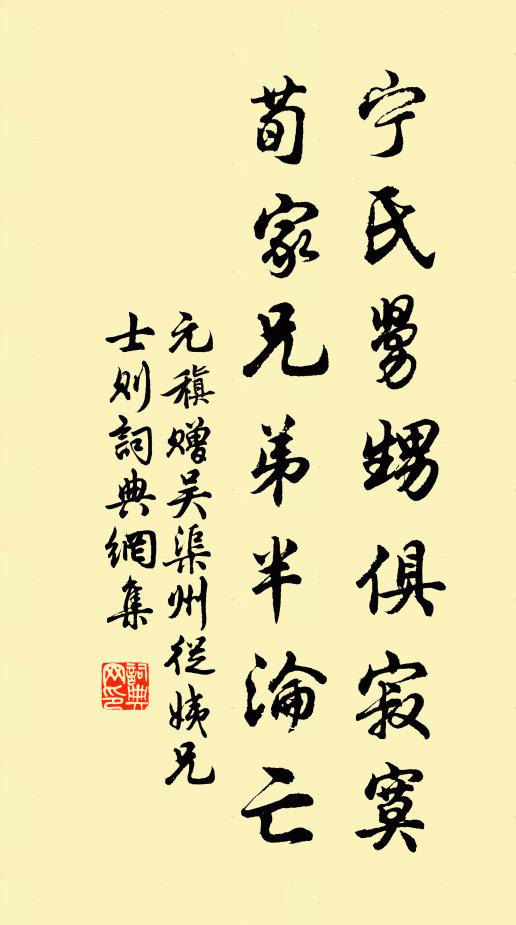 宁氏舅甥俱寂寞
荀家兄弟半淪亡
元稹贈吴渠州從姨兄
士则詞典網集
詞典网印